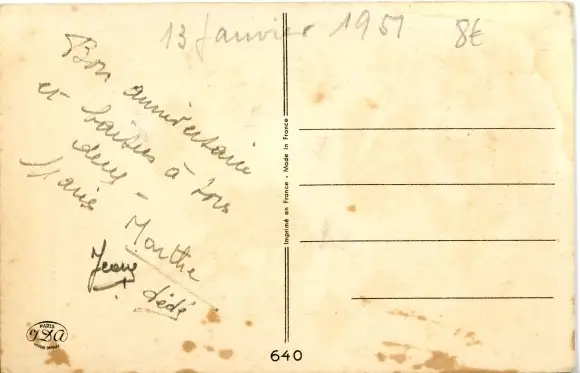 13 Janvier 1951
8€
Bon anniversaire
et baisers à tous
deux -
Marie
Marthe
Jeany
dédé
Imprimé en France - Made in France
PARIS
640